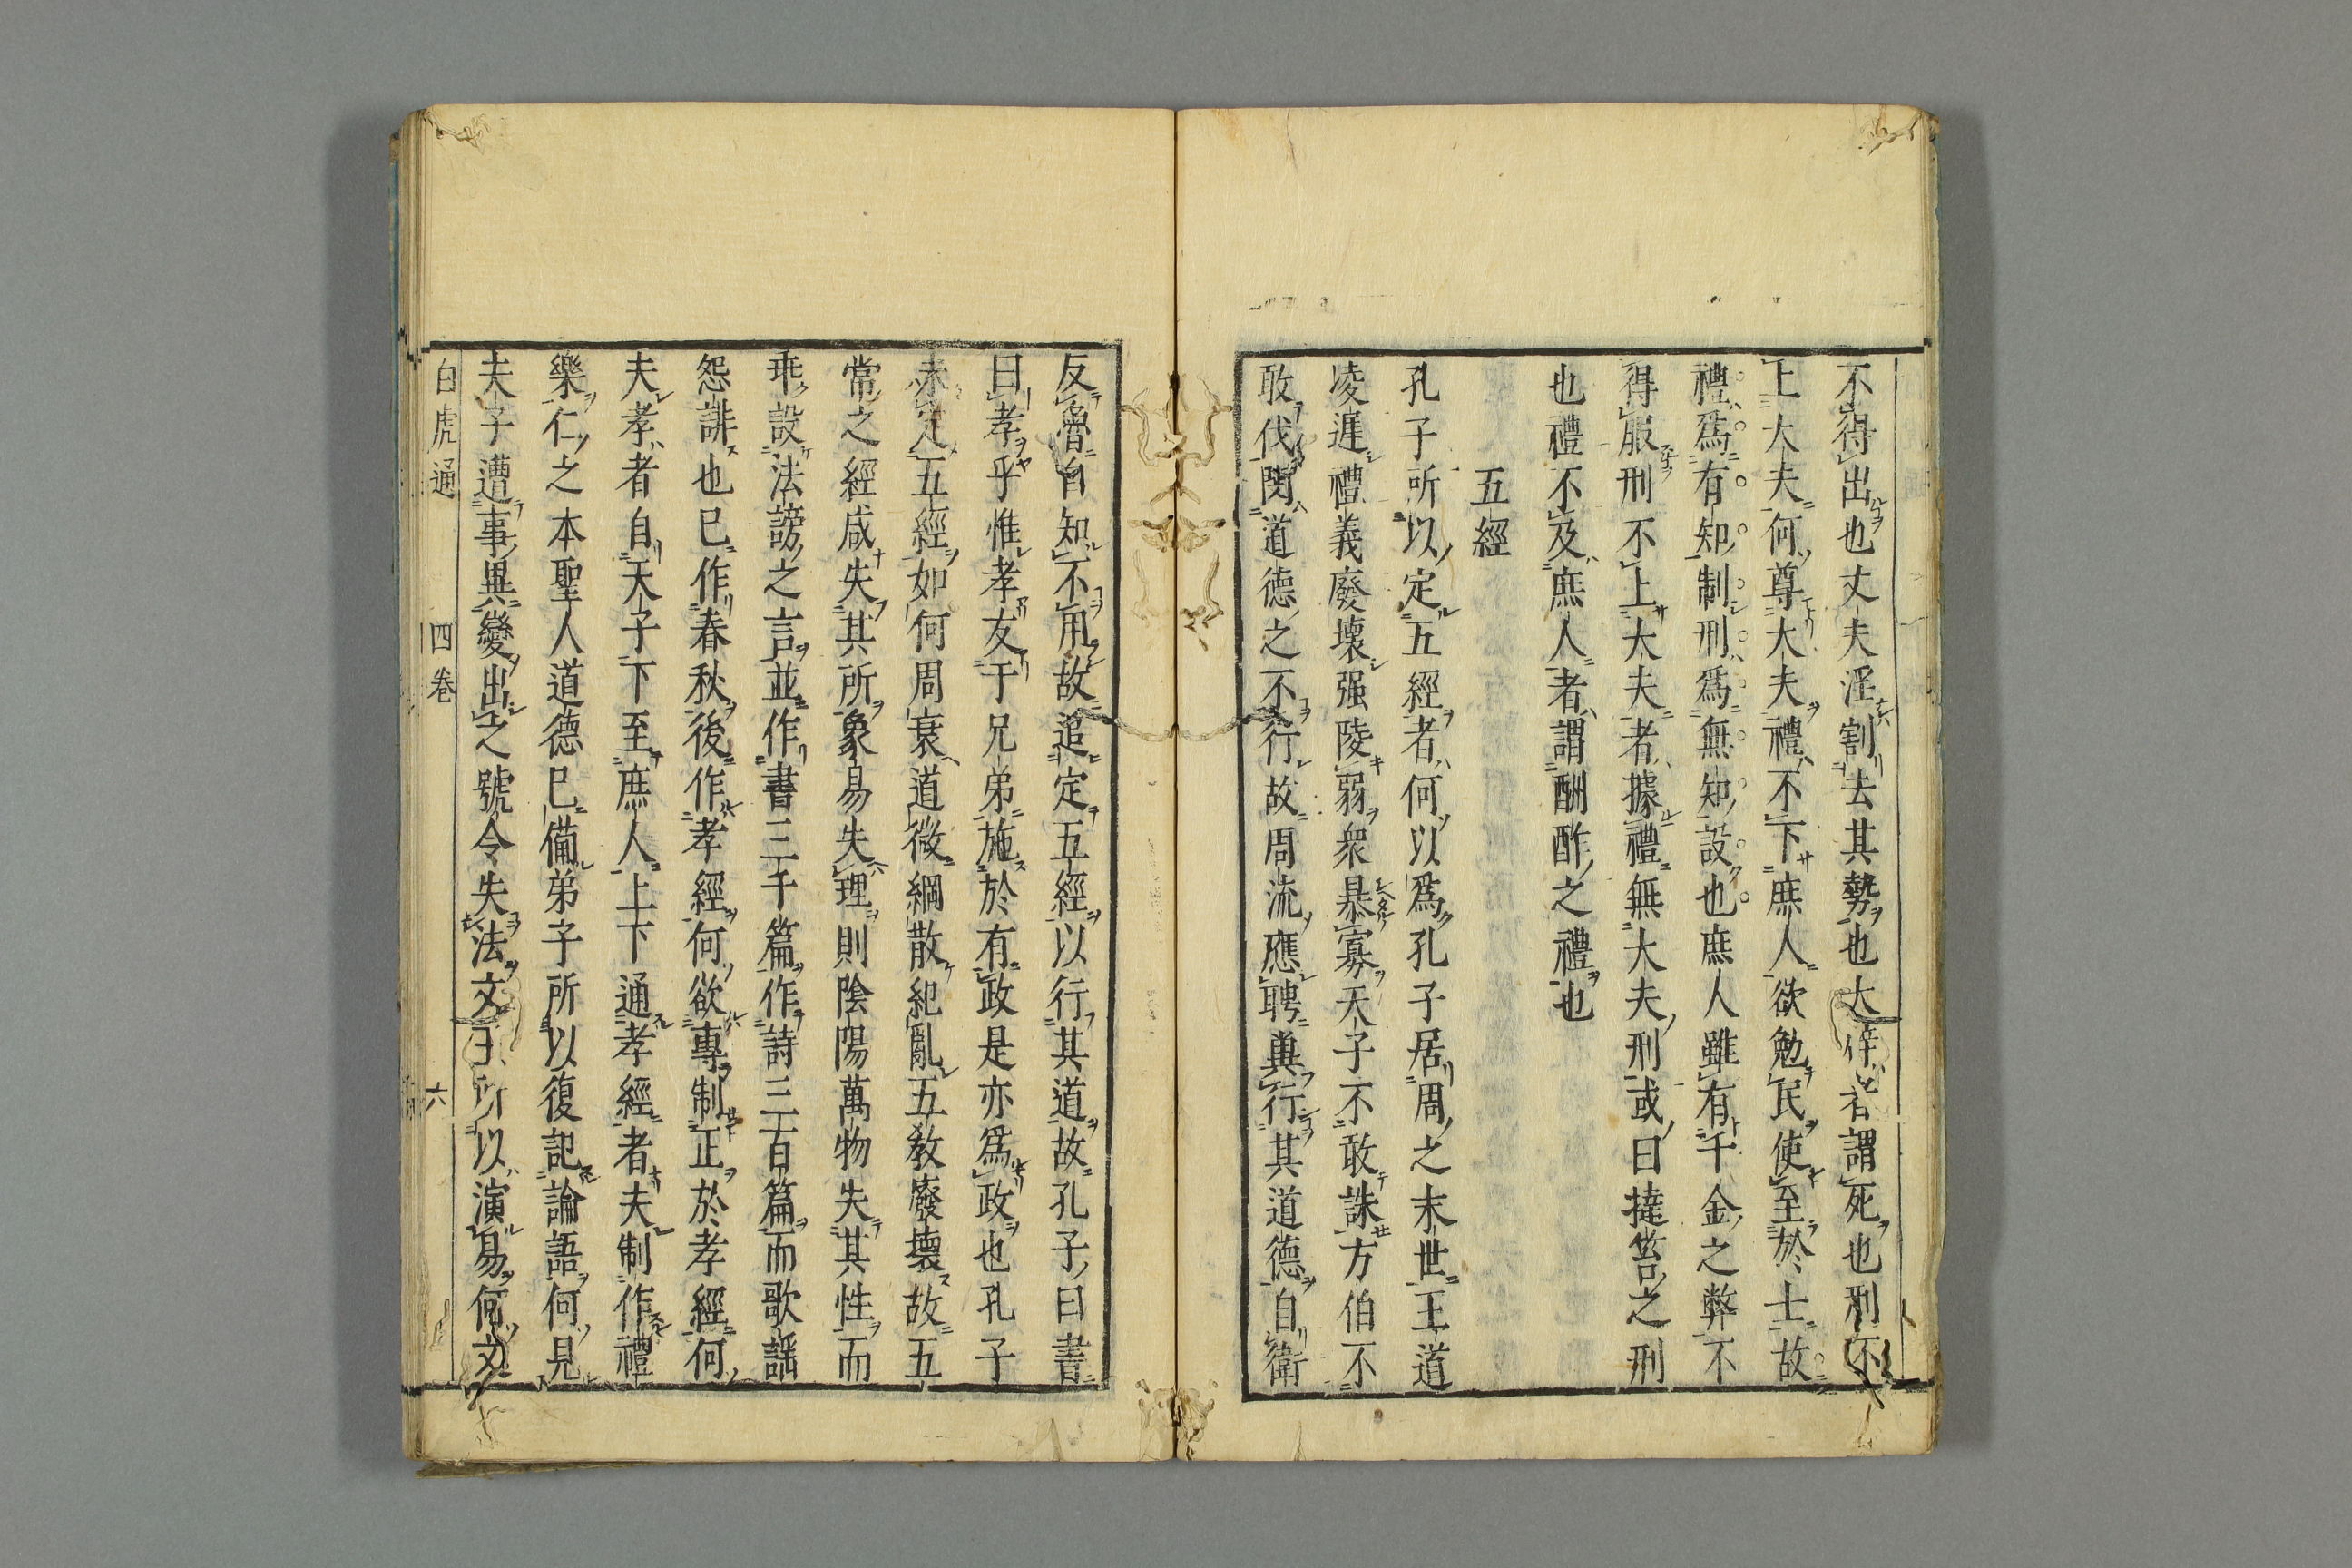 不得出也丈夫淫割去其勢也大辟者謂死也刑不
上大夫何尊大夫禮不下庶人欲勉民使至於士故
禮爲有知制刑爲無知設也庶人雖有千金之弊不
得服刑不上大夫者據禮無大夫刑或曰撻笞之刑
也禮不及庶人者謂酬酢之禮也
五經
孔子所以定五經者何以爲孔子居周之末世王道
凌遲禮義廢壞强陵弱衆暴寡天子不敢誅方伯不
敢伐閔道德之不行故周流應聘兾行其道德自衛
反魯自知不用故追定五經以行其道故孔子曰書
曰孝乎惟孝友于兄弟施於有政是亦爲政也孔子
未定五經如何周衰道微綱散紀亂五教廢壞故五
常之經咸失其所象易失理則陰陽萬物失其性而
乖設法謗之言並作書三千篇作詩三百篇而歌謡
怨誹也已作春秋後作孝經何欲專制正於孝經何
夫孝者自天子下至庶人上下通孝經者夫制作禮
樂仁之本聖人道德已備弟子所以復記論語何見
夫子遭事異變出之號令失法文王所以演易何文
白虎通 四卷 六